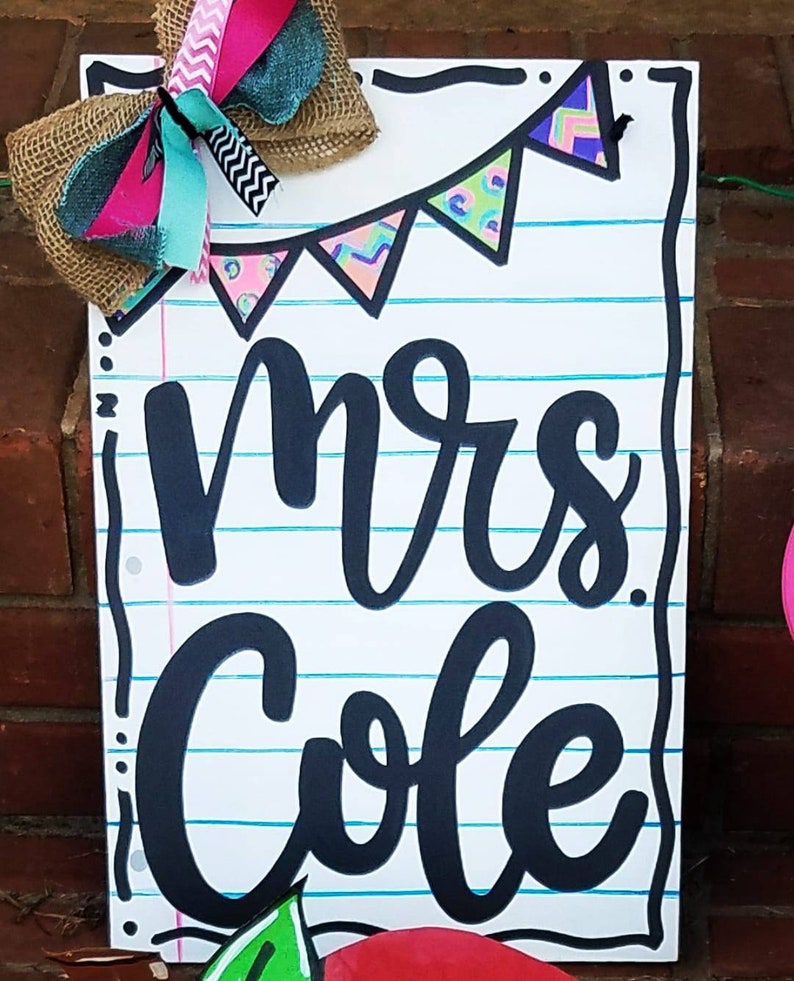 mrs.
Cole